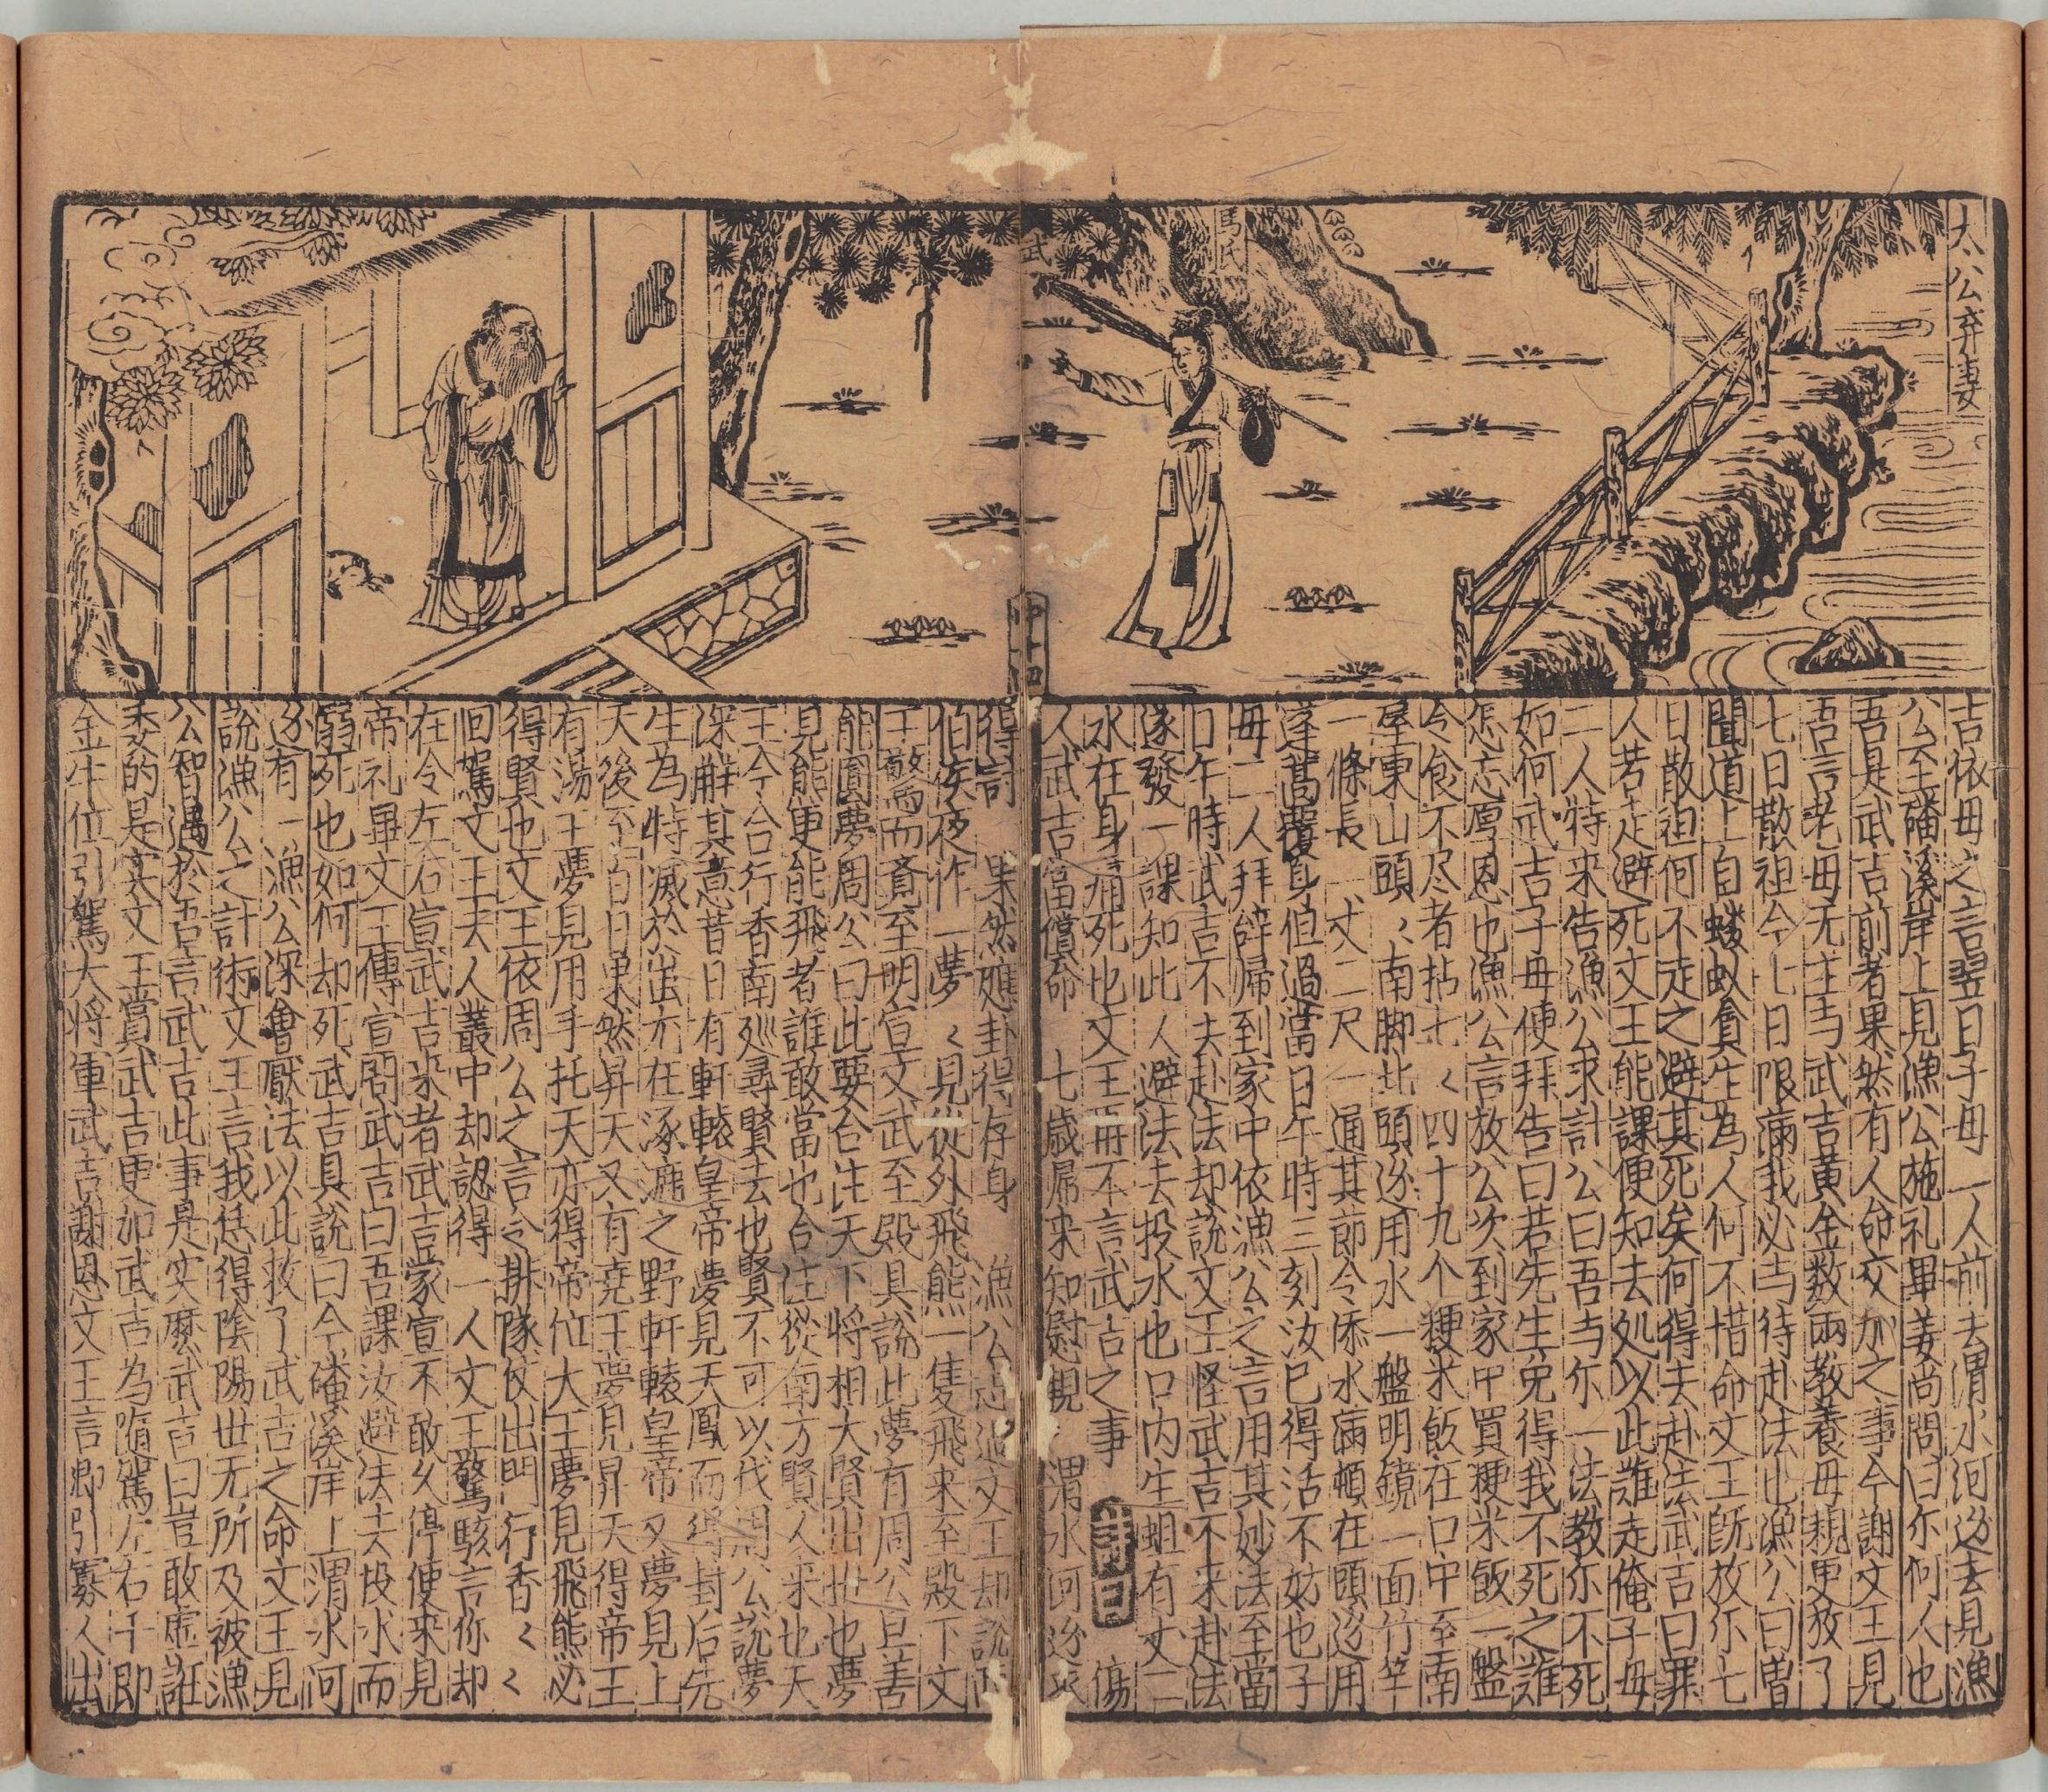 太公弃妻
馬氏
武
吉依母之言翌日子母二人前去渭水河边去見漁
公至磻溪岸上見漁公施礼畢姜尚問曰尓何人也
吾是武吉前者果然有人命交加之事今謝文王見
吾言老母无主与武吉黄金数兩教養母親更放了
七日散袒今七日限滿我必与待赴法也漁公曰曽
聞道上自螻蚁貪生為人何不惜命文王既放尓七
日散袒何不走之避其死矣何得去赴法武吉曰罪
人若走避死文王能課便知去処以此誰走俺子母
二人特来告漁公求計公曰吾与尓一法教尓不死
如何武吉子母便拜告曰若先生免得我不死之誰
怎忘厚恩也漁公言放公次到家中買粳米飯一盤
令食不尽者拈七〻四十九个粳米飯在口中至南
屋東山頭〻南脚北頭边用水一盤明鏡一面竹竿
一條長一丈二尺一通其節令添水滿頓在頭边用
蓬蒿覆身但過當日午時三刻汝已得活不妨也子
母二人拜辞帰到家中依漁公之言用其妙法至當
日午時武吉不去赴法却說文王怪武吉不来赴法
遂發一課知此人避法去投水也口内生蛆有丈二
水在身痛死也文王冊不言武吉之事 詩曰 傷
人武吉當償命 七歳屠来知慰親 渭水河边求
得計 果然應卦得存身 漁公
伯侯夜作一夢〻見從外飛熊一隻飛来至殿下文
王驚而覚至明宣文武至殿具說此夢有周公旦善
能圓夢周公曰此要合注天下將相大賢出世也夢
見熊更能飛者誰敢當也合注從南方賢人来也天
王今合行香南廵尋賢去也賢不可以伐周公說夢
深解其意昔日有軒轅皇帝夢見天鳳而得封后先
生為特滅於出尤在涿鹿之野軒轅皇帝又夢見上
天後至百日果然昇天又有堯王夢見昇天得帝王
有湯王夢見用手托天亦得帝位大王夢見飛熊必
得賢也文王依周公之言令排隊仗出門行香〻〻
回駕文王去人叢中却認得一人文王驚駭言你却
在令左右宣武吉来者武吉蒙宣不敢久停便来見
帝礼畢文王傳宣問武吉曰吾課汝避法去投水而
溺死也如何却死武吉具說曰今磻溪岸上渭水河
边有一漁公深會厭法以此救了武吉之命文王見
說漁公之計術文王言我恁得陰陽世无所及被漁
公智過於吾言武吉此事是实麽武吉曰豈敢虛誑
委的是实文王賞武吉更加武吉為隋駕左右千即
金牛位引駕大将軍武吉謝恩文王言卿引寡人出